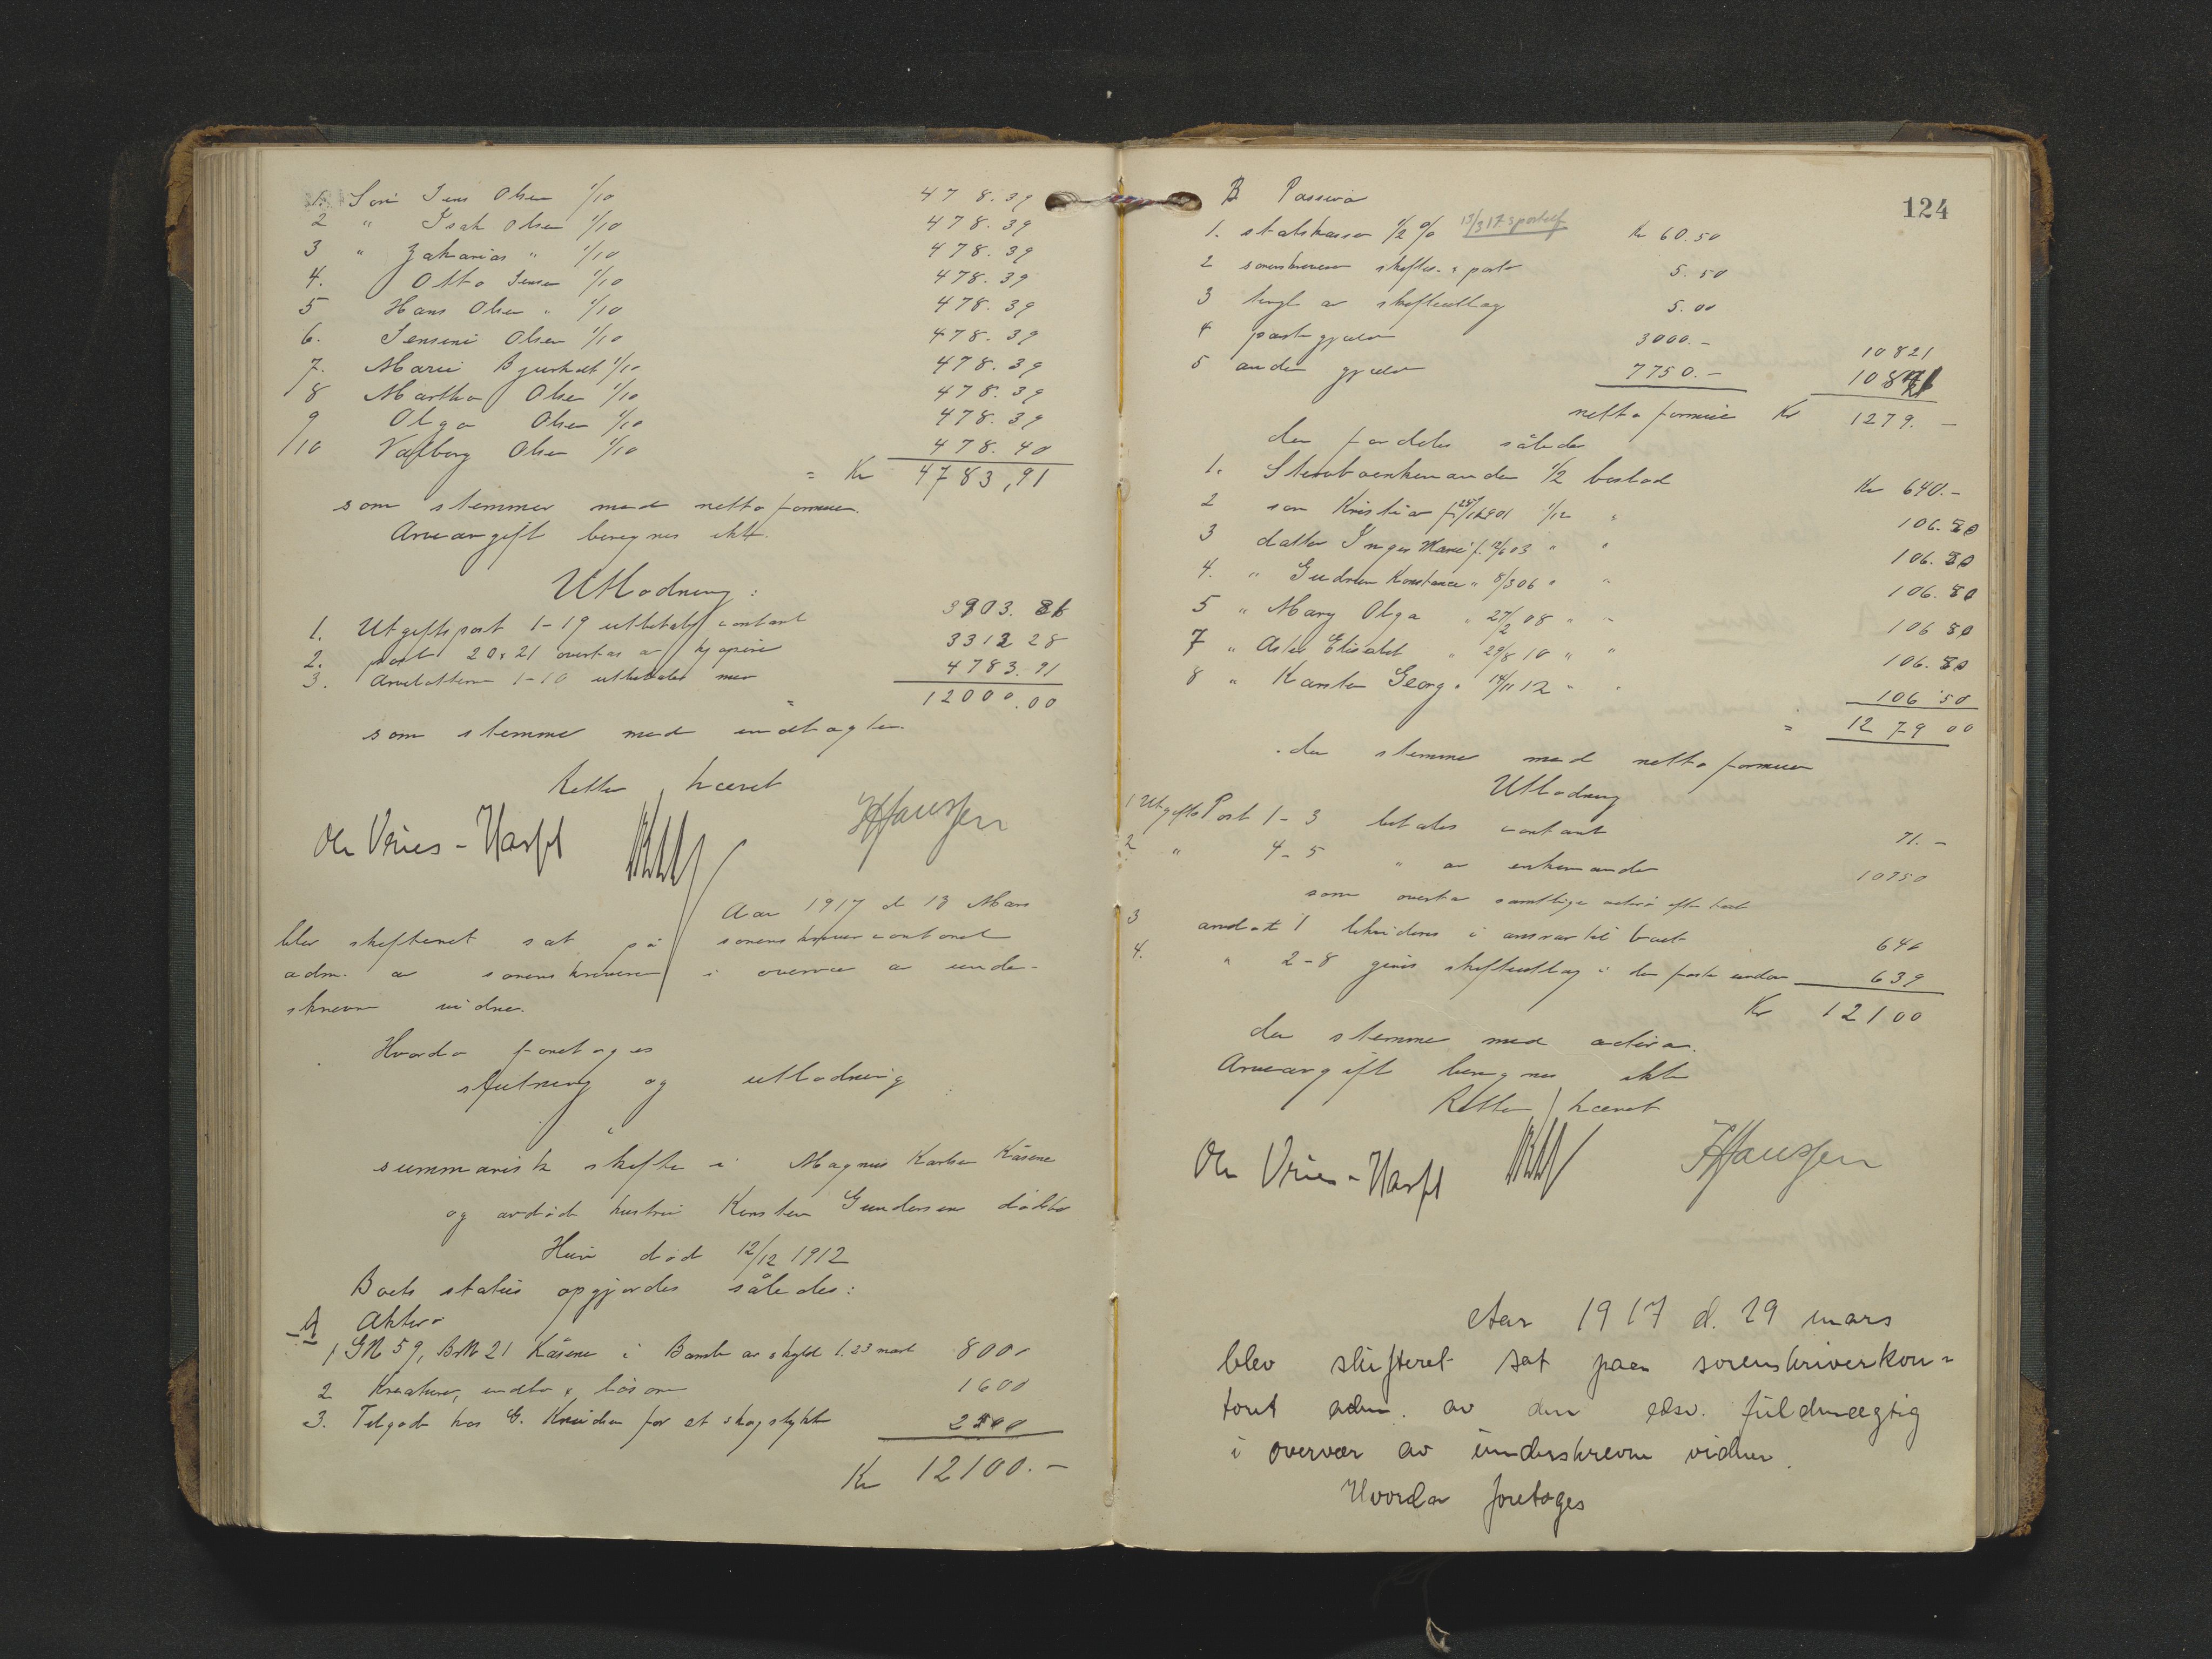 1. Søn Jens Olsen 1/10 478.39
2 " Isak Olsen 1/10 478.39
3 " Zakarias " 1/10 478.39
4. Otto Jensen 1/10 478.39
5 Hans Olsen " 1/10 478.39
6. Jensine Olsen 1/10 478.39
7. Marie 1/10 478.39
8 Martha Olsen 1/10 478.39
9 Olga Olsen 1/10 478.39
10 Valborg Olsen 1/10 478.40
= Kr 4783,91
som stemmer med netto formuen.
Arveavgift beregnes ikke.
Utlodning:
1. Utgiftspost 1-19 utbetales contant 3903.81
2. post 20 & 21 overtas av kjøperen 3312 28
3. Arvelotterne 1-10 utbetales med 4783.91
= 12000.00
som stemmer med indtægten.
Retten hævet
HHanssen
Aar 1917 d 13 Mars
blev skifteret sat på sorenskrivercontoret
adm. av sorenskriveren i overvær av under-
skrevne vidner.
Hvorda foretages
slutning og utlodning
i
summarisk skifte i Magnus Karlsen Kåsene
og avdøde hustru Kirsten Gundersens dødsbo
Hun død 12/12 1912
Boets status opgjordes således:
A Aktiva
1 GN 59, BrN 21 Kåsene i Bamble av skyld 1.23 mark 8000
2 Kreaturer, indbo & løsøre 1600
3. Tilgode hos G. Knudsen for et skogstykke 2500
Kr 12100.-
124
B Passiva
1. statskassen 1/2 % Kr 60.50
2 sorenskriveren skiftes. & porto 5.50
3 tingl av skifteutlæg 5.00
4 pantegjæld 3000.-
5 anden gjæld 7750.- 10821
netto formue Kr 1279.-
der fordeles således
1. Stervboenkemanden 1/2 boslod Kr 640.-
2 søn Kristian 1/12 " 106.50
3 datter Inger Marie f. 12/6 03 " " 106.50
4. " Gudrun Konstance " 8/3 06 " " 106.50
5 " Mary Olga " 27/2 08 " " 106 50
7 " Elisabet " 29/8 10 " " 106.50
8 " Karsten Georg " 14/11 12 " " 106 50
= 1279 00
der stemmer med netto formuen
Utlodning
1 Utgifts Post 1-3 betales contant 71.-
2 " 4-5 " av enkemanden 10750
som overtar samtlige activa efter takst
3 1 likvideres i ansvar til boet 640
4. " 2-8 gives skifteutlæg i den faste eiendom 639
Kr 12100
der stemmer med activa.
Arveavgift beregnes ikke
Retten hævet
HHanssen
Aar 1917 d. 29 mars
blev skifteret sat paa sorenskriverkon=
toret adm. av den edsv. fuldmægtig
i overvær av underskrevne vidner.
Hvorda foretages